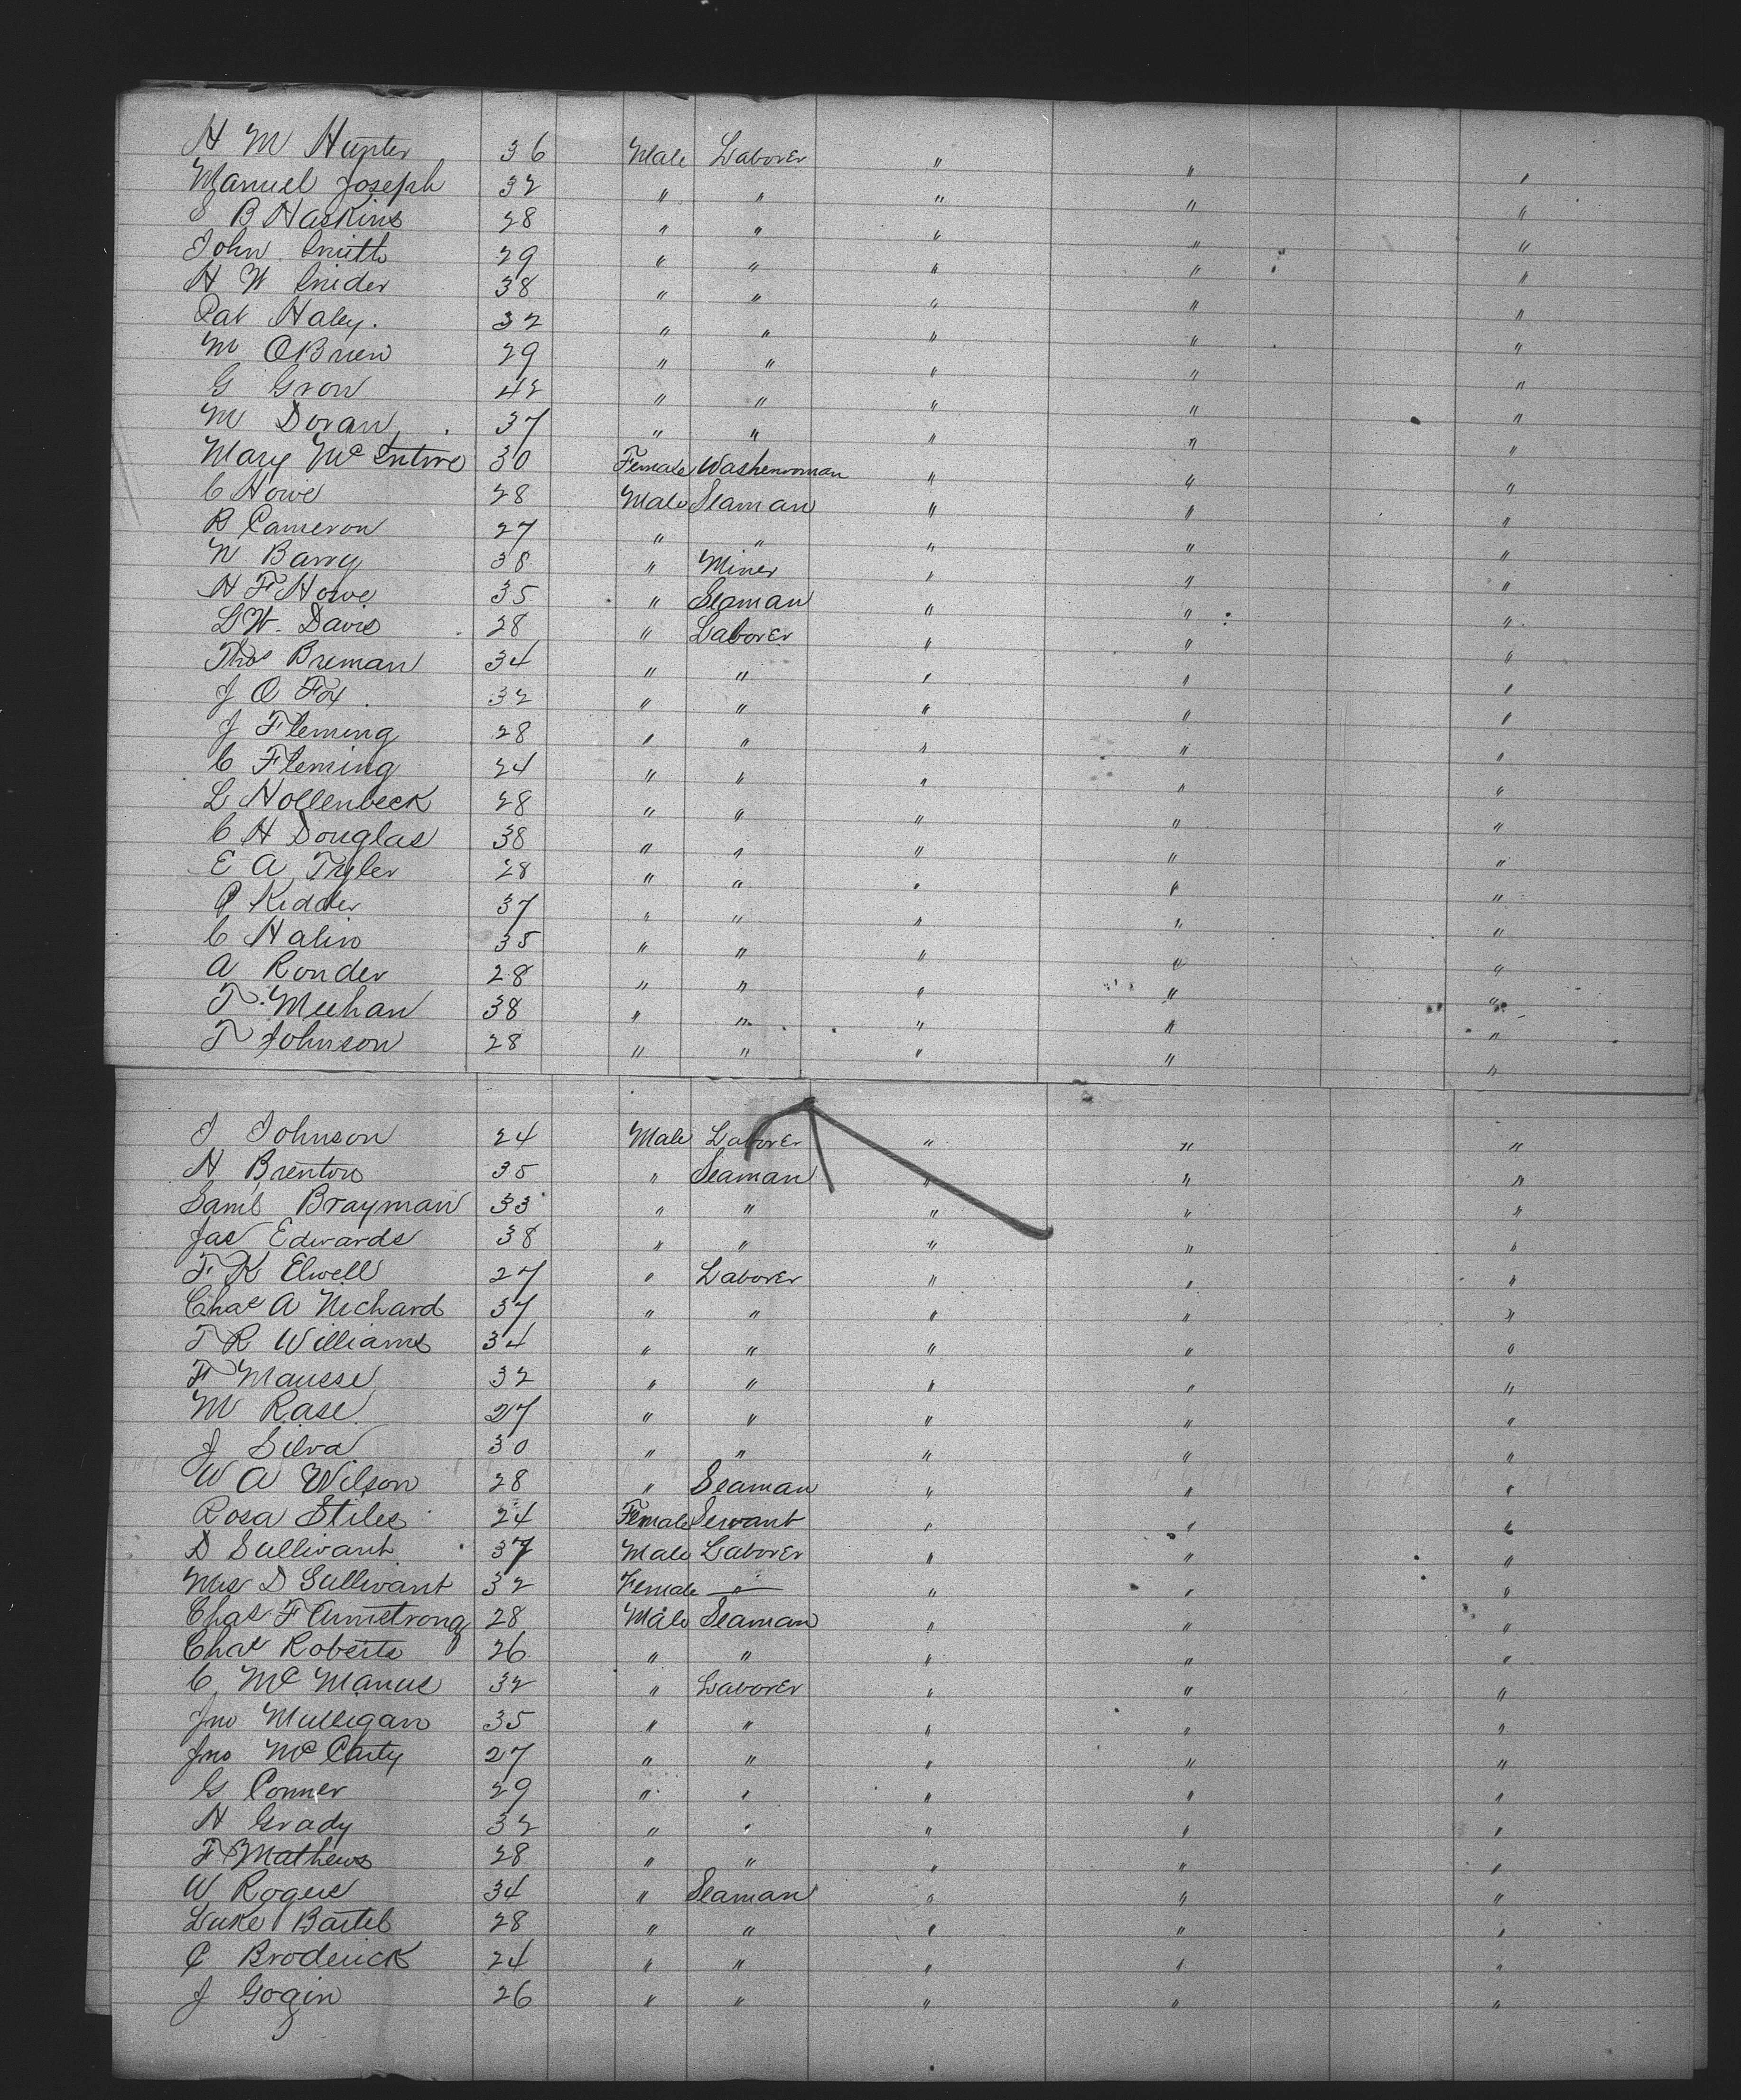 H M Hunter 36 Male Laborer " " "
Manuel Joseph 32 " " " " "
S B Haskins 28 " " " " "
John Smith 29 " " " " "
H W Snider 38 " " " " "
Pat Haley. 32 " " " " "
M OBrien 29 " " " " "
G Gron 42 " " " " "
M Doran 37 " " " " "
Mary McEntire 30 Female Washerwoman " " "
C Howe 28 Male Seaman " " "
R Cameron 27 " " " " "
N Barry 38 " Miner " " "
H F Howe 35 " Seaman " " "
L W. Davis 28 " Laborer " " "
Thos Breman 34 " " " " "
J O Fox 32 " " " " "
J Fleming 28 " " " " "
C Fleming 24 " " " " "
L Hollenbeck 28 " " " " "
C H Douglas 38 " " " " "
E A Tyler 28 " " " " "
P Kedder 37 " " " " "
C Halin 35 " " " " "
A Ronder 28 " " " " "
T. Meehan 38 " " " " "
T Johnson 28 " " " " "
J Johnson 24 Male Laborer " " "
H Brenton 35 " Seaman " " "
Saml Brayman 33 " " " " "
Jas Edwards 38 " " " " "
F K Elwell 27 " Laborer " " "
Chas A Nichard 37 " " " " "
T R Williams 34 " " " " "
F Mausse 32 " " " " "
M Rase 27 " " " " "
J Silva 30 " " " " "
W A Wilson 28 " Seaman " " "
Rosa Stiles 24 Female Servant " " "
D Sullivant 37 Male Laborer " " "
Mrs D Sullivant 32 Female " " " "
Chas F Armstrong 28 Male Seaman " " "
Chas Roberts 26 " " " " "
C McManus 32 " Laborer " " "
Jno Mulligan 35 " " " " "
Jno McCarty 27 " " " " "
G Conner 29 " " " " "
H Grady 32 " " " " "
F Mathews 28 " " " " "
W Rogers 34 " Seaman " " "
Luke Bartel 28 " " " " "
C Broderick 24 " " " " "
J Gogin 26 " " " " "